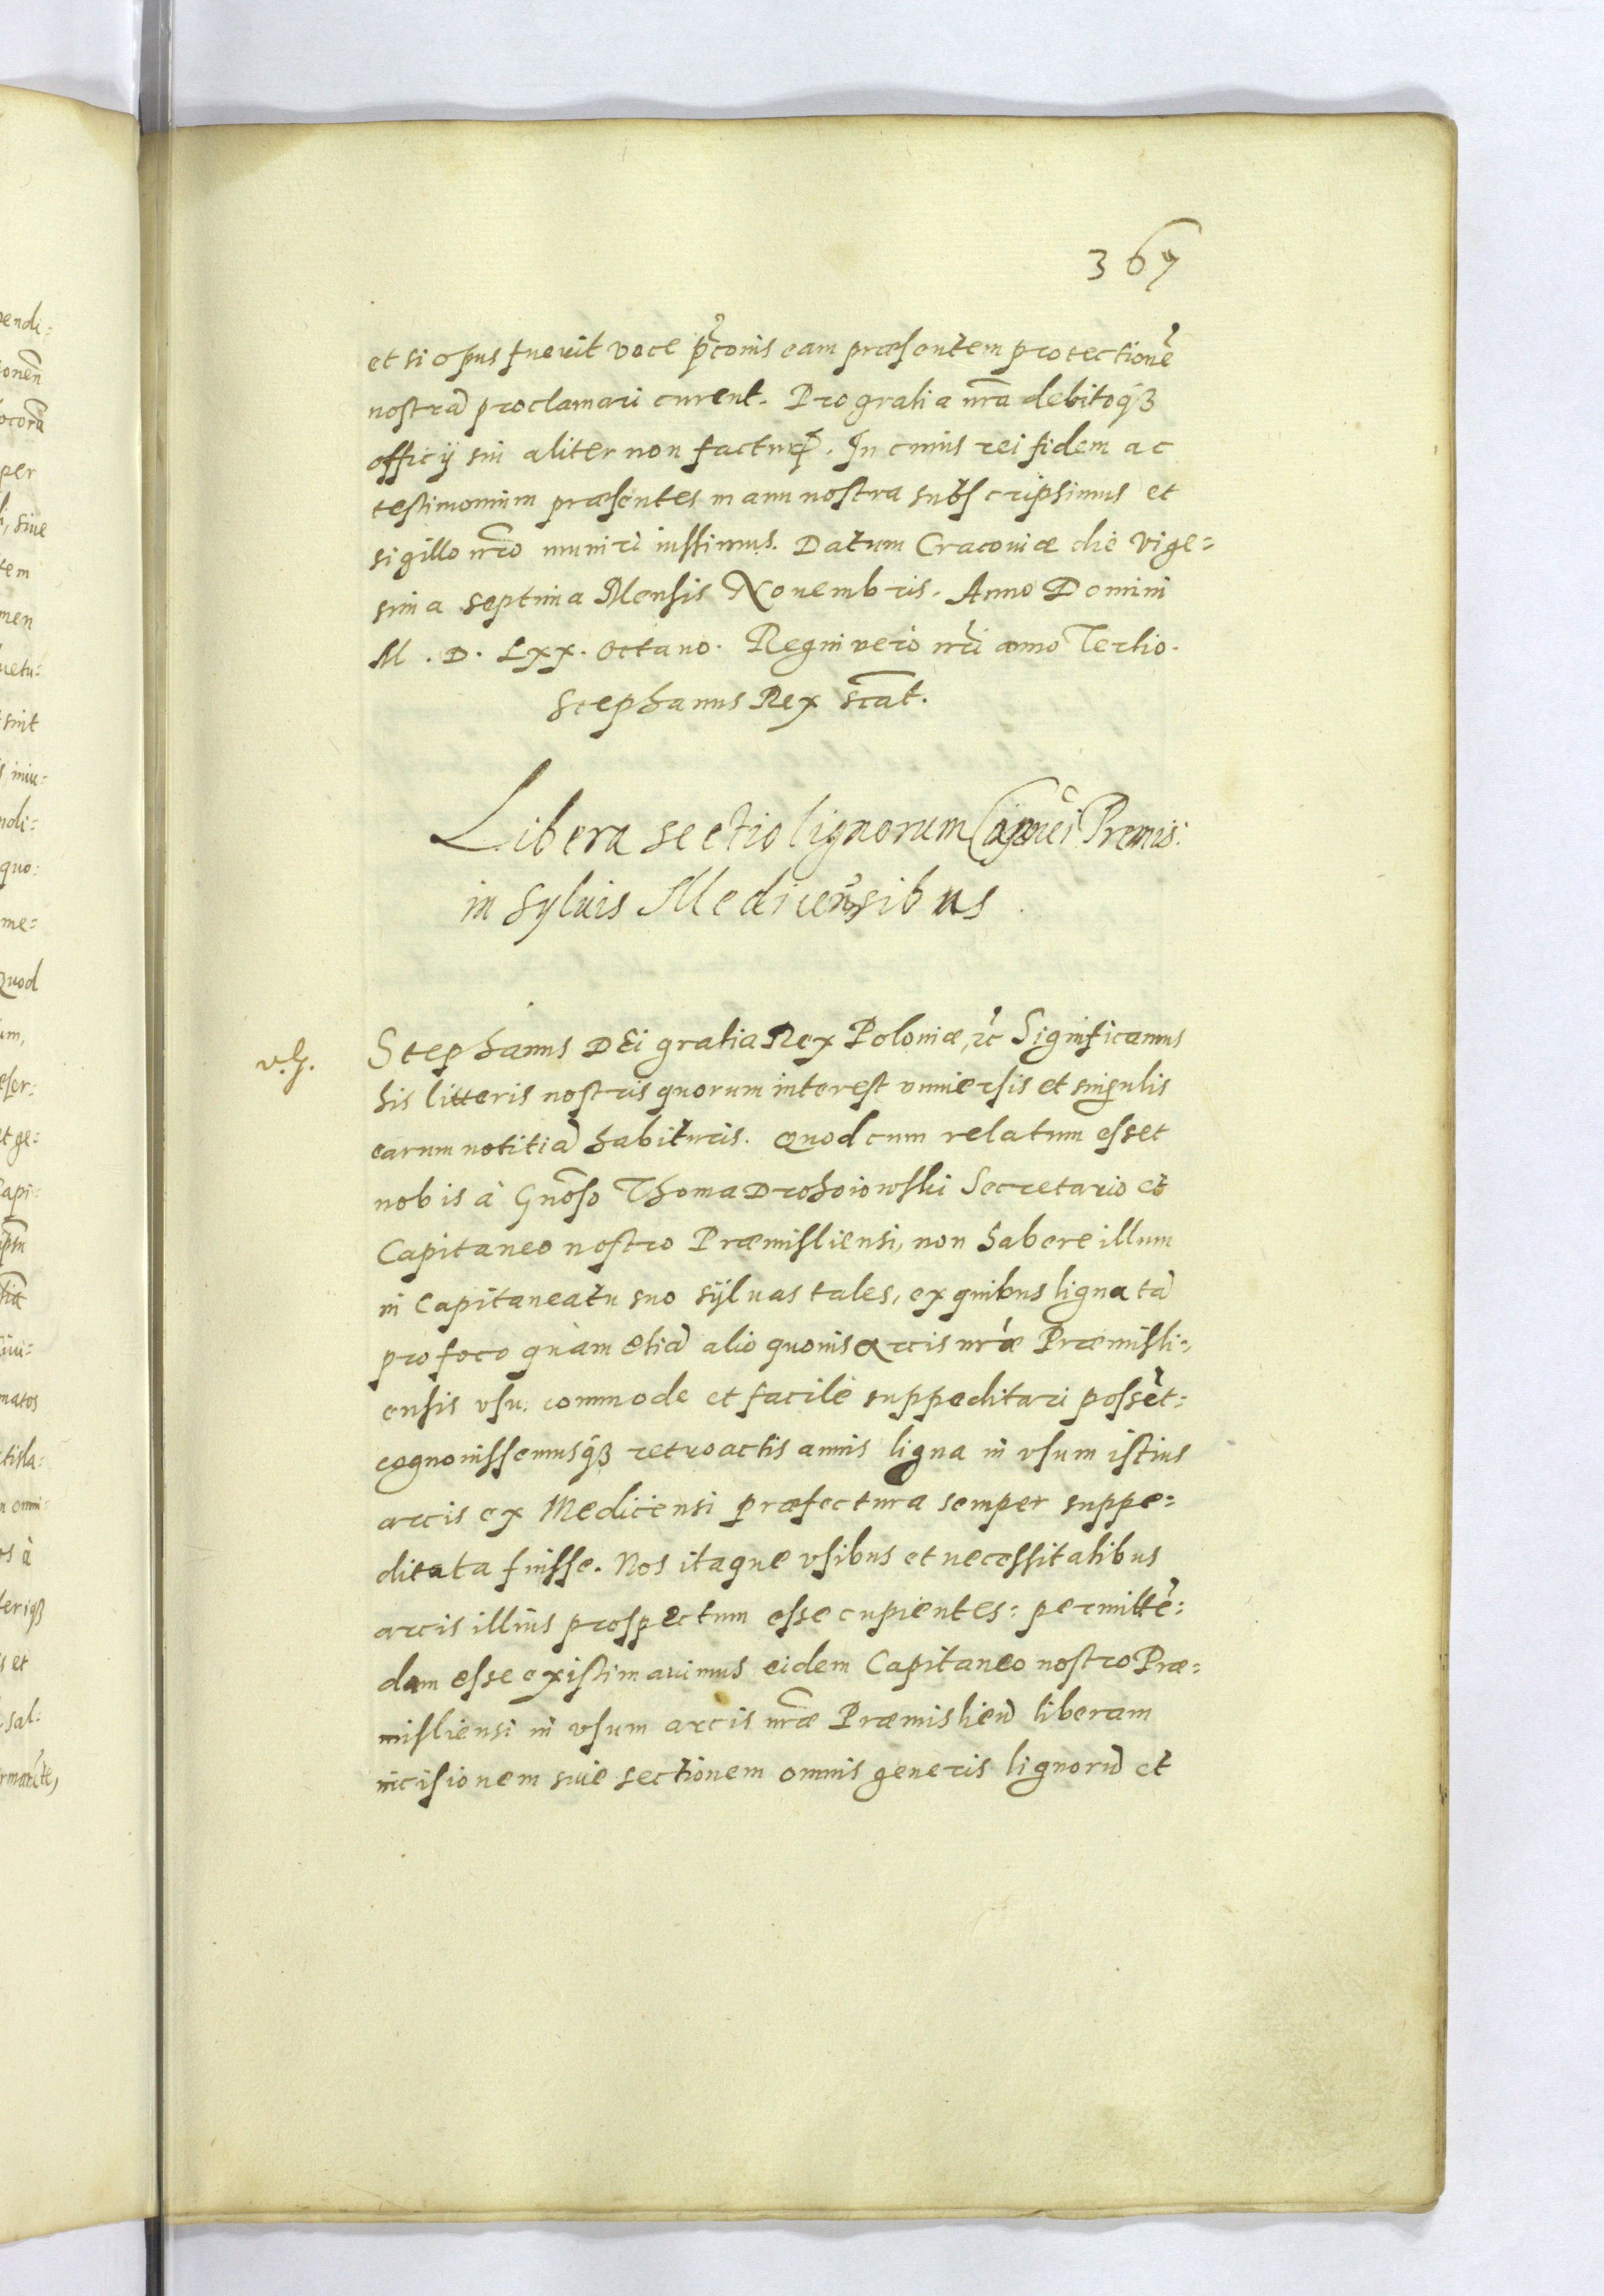 367
et si opus fuerit voce p̃conis eam præsentem protectionẽ
nostrã proclamari curent. Pro gratia nr̃a debitoq́ꝫ
officij sui aliter non facturi. In cuius rei fidem ac
testimonium præsentes manu nostra subscripsimus et
sigillo nr̃o muniri iussimus. Datum Cracoviæ die Vige=
sima septima Mensis Novembris. Anno Domini
M. D. LXX. octavo. Regni vero nr̃i anno Tertio.
Stephanus Rex scat̃.
Libera sectio lignorum Capnei Premis:
in sylvis Medicensibus.
v. g.
Stephanus DEi gratia Rex Poloniæ, ꝛc Significamus
his litteris nostris quorum interest vniversis et singulis
earum notitiã habituris. Quod cum relatum esset
nobis à Gnõso Thoma Drohoiowski Secretario et
Capitaneo nostro Præmisliensi, non habere illum
in Capitaneatu suo sylvas tales, ex quibus ligna tã
pro foco quàm etiã alio quovis arcis nr̃æ Præmisli=
ensis vsu. commode et facile suppeditari possẽt=
cognovissemusq́ꝫ retroactis annis ligna in vsum istius
arcis ex Medicensi præfectura semper suppe=
ditata fuisse. Nos itaque vsibus et necessitatibus
arcis illius prospectum esse cupientes: permittẽ=
dam esse existimavimus eidem Capitaneo nostro Præ=
misliensi in vsum arcis nr̃æ Præmislieñ liberam
incisionem sive sectionem omnis generis lignorũ et